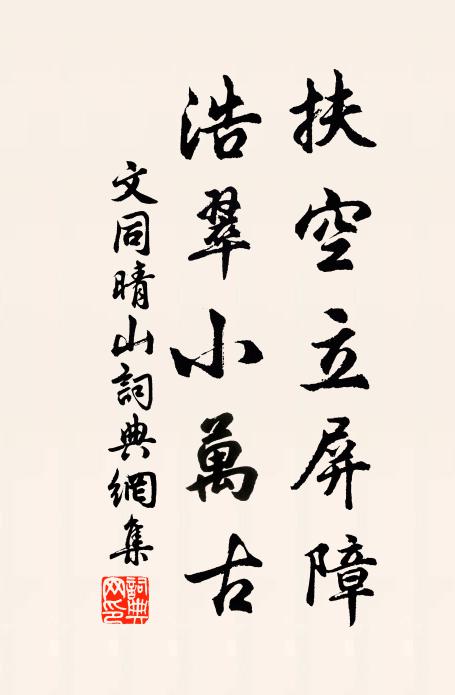 扶空立屏障
浩翠小萬古
文同晴山詞典網集
詞典网印